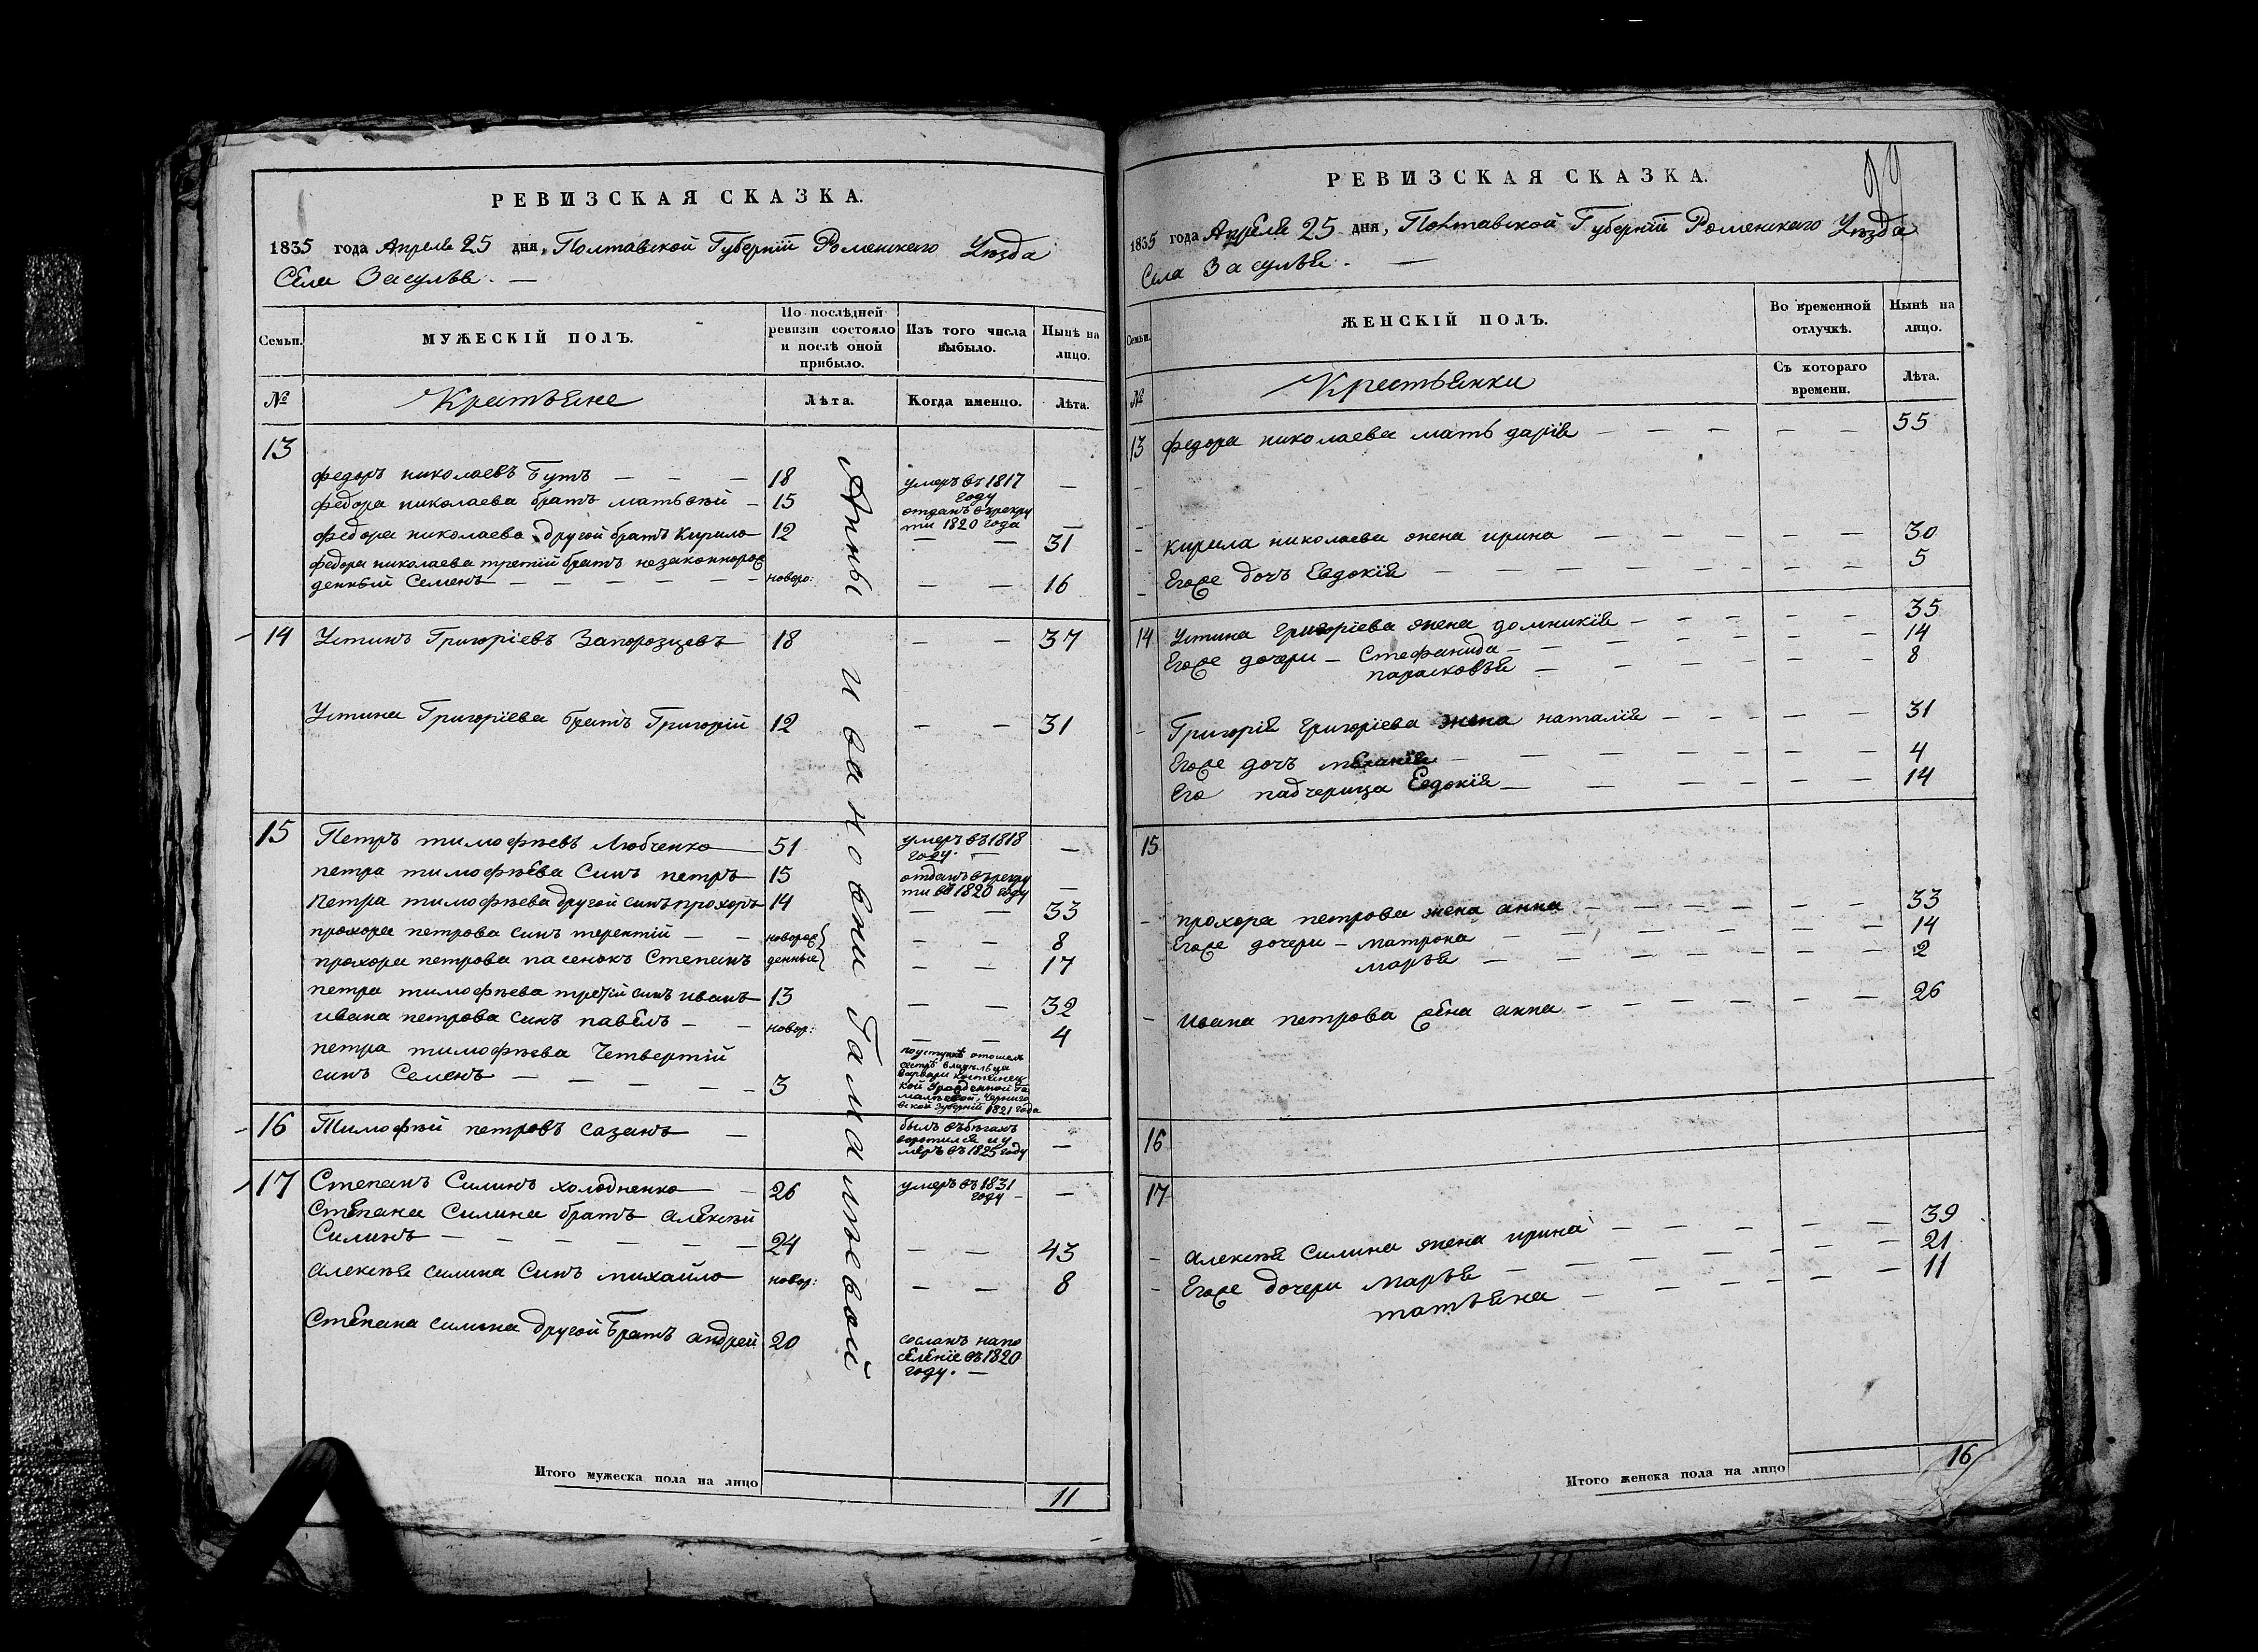 РЕВИЗСКАЯ СКАЗКА.
1835 года Апреля 25 дня, Полтавской Губерніи Роменскаго Уезда
Села Засулья. —
Семьи.
МУЖЕСКІЙ ПОЛЪ.
По послѣдней ревизіи состояло и послѣ оной прибыло.
Изъ того числа выбыло.
Нынѣ на лицо.
№
Крестьяне
Лѣта.
Когда именно.
Лѣта.
Анны Ивановни Гамалѣевой
13
федоръ николаевъ Бутъ — — — 18 умеръ въ 1817 году —
федора николаева братъ матьвѣй — 15 отданъ въ рекрути 1820 года —
федора николаева другой братъ Кирило 12 — — 31
федора николаева третій братъ незаконнорож
денный Семенъ — — — — — — новоро: — — 16
14 Устинъ Григоріевъ Запорозцевъ 18 — — 37
Устина Григоріева братъ Григорій 12 — — 31
15 Петръ тимофѣевъ Любченко 51 умеръ въ 1818 году. — —
петра тимофѣева Синъ петръ 15 отданъ въ рекрути въ 1820 году —
Петра тимофѣева другой синъ прохоръ 14 — — 33
прохора петрова синъ терентій — — новорож — — 8
прохора петрова пасенокъ Степанъ денные — — 17
петра тимофѣева третій синъ иванъ 13 — — 32
ивана петрова синъ павелъ — — новор: — — 4
петра тимофѣева Четвертій
синъ Семенъ — — — — — 3
поуступкѣ отошелъ
сестрѣ владѣльца
Варвари
кой Урожденной Га
малѣевой, Черниго
вской губерніи 1821 года
16 Тимофѣй петровъ сазанъ —
былъ въ бѣгахъ
воротился и у
меръ въ 1825 году —
17 Степанъ Силинъ холодненко — 26 умеръ въ 1831 году — —
Степана Силина братъ алексѣй
Силинъ — — — — — — 24 — — 43
алексѣя силина Синъ михайло новор: — — 8
Степана силина другой Братъ андрей 20 сосланъ напо
селеніе въ 1820
году. —
Итого мужеска пола на лицо
11
РЕВИЗСКАЯ СКАЗКА.
1835 года Апреля 25 дня, Полтавской Губерніи Роменскаго Уезда
Села Засулья. —
Семьи.
ЖЕНСКІЙ ПОЛЪ.
Во временной отлучкѣ.
Нынѣ на лицо.
№
Крестьянки
Съ котораго времени.
Лѣта.
13 федора николаева мать дарія — — — — — 55
кирила николаева жена ирина — — — — — 30
Егоже дочъ Евдокія — — — — — — — 5
14 Устина григоріева жена домникія — — — — — 35
Егоже дочери — Стефанида — — — — — — 14
парасковья — — — — — — 8
Григорія григоріева жена наталія — — — — — 31
Егоже дочъ меланія — — — — — — 4
Его падчерица Евдокія — — — — — 14
15
прохора петрова жена анна — — — — — — 33
Егоже дочери — матрона — — — — — — 14
марья — — — — — — — 2
ивана петрова жена анна — — — — — — 26
16
17
алексѣя Силина жена ирина — — — — — 39
Егоже дочери марья — — — — — — 21
татьяна — — — — — — 11
Итого женска пола на лицо
16